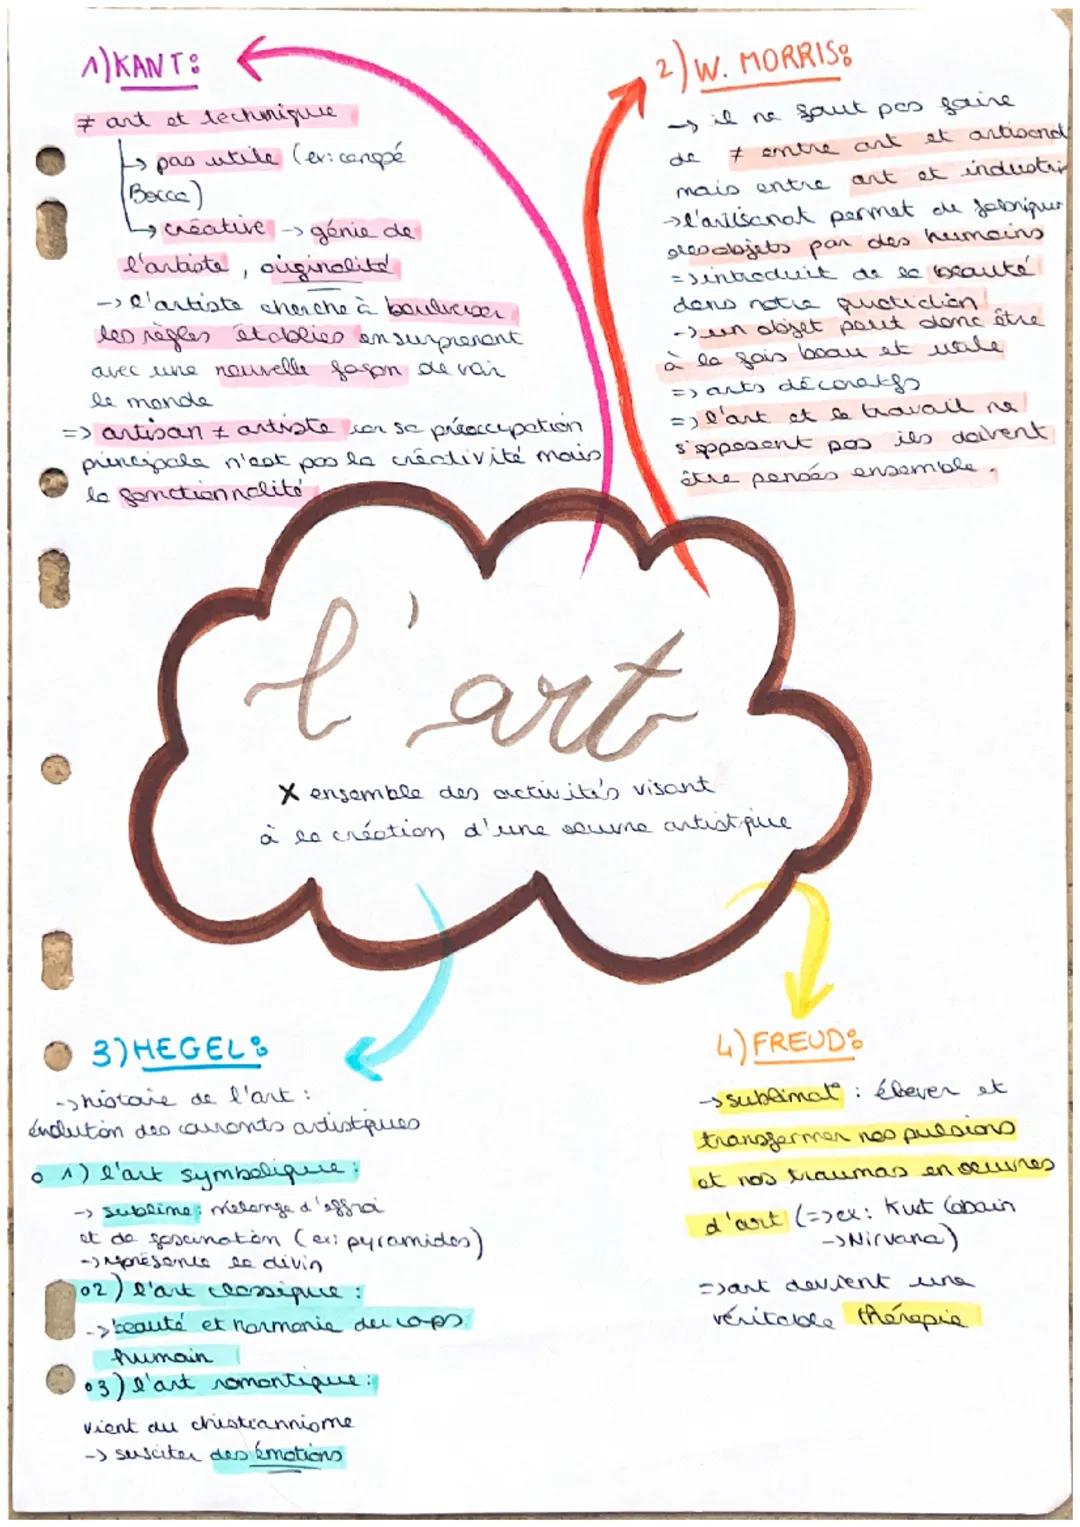 1) KANT:
≠ art et technique
↳ pas utile (ex: canapé
Bocca)
↳ créative → génie de
l'artiste, originalité
→ l'artiste cherche à bouleverser
les règles établies en surprenant
avec une nouvelle façon de voir
le monde
=> artisan ≠ artiste car sa préoccupation
principale n'est pas la créativité mais
la fonctionnalité
2) W. MORRIS:
→ il ne faut pas faire
de ≠ entre art et artisanat
mais entre art et industrie
→ l'artisanat permet de fabriquer
des objets par des humains
=> introduit de la beauté
dans notre quotidien
→ un objet peut donc être
à la fois beau et utile
=> arts décoratifs
=> l'art et le travail ne
s'opposent pas ils doivent
être pensés ensemble.
l'art
X ensemble des activités visant
à la création d'une oeuvre artistique
3) HEGEL:
→ histoire de l'art :
évolution des courants artistiques
o 1) l'art symbolique :
→ sublime : mélange d'effroi
et de fascination (ex: pyramides)
→ représente le divin
o 2) l'art classique :
→ beauté et harmonie du corps
humain
o 3) l'art romantique :
vient du christiannisme
→ susciter des émotions
4) FREUD:
→ sublimat° : élever et
transformer nos pulsions
et nos traumas en oeuvres
d'art (=> ex: Kurt Cobain
→ Nirvana)
=> art devient une
véritable thérapie